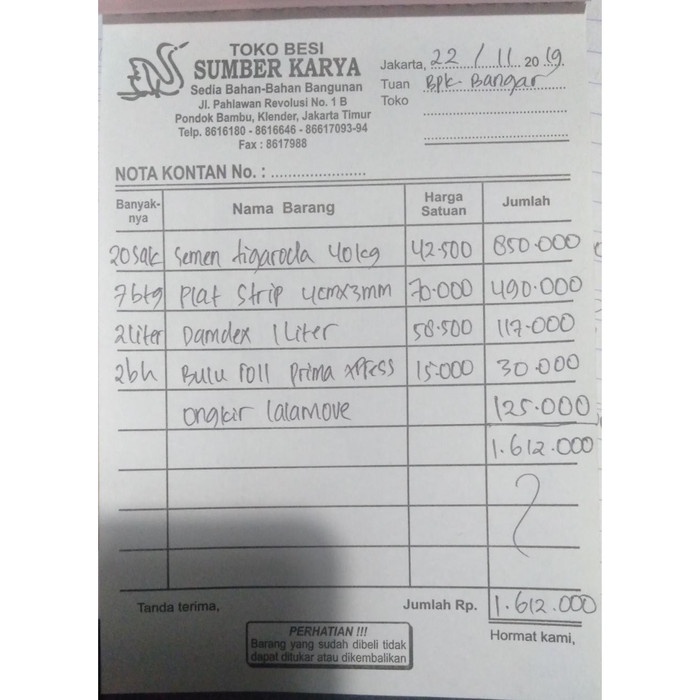 TOKO BESI
SUMBER KARYA
Sedia Bahan-Bahan Bangunan
Jl. Pahlawan Revolusi No. 1 B
Pondok Bambu, Klender, Jakarta Timur
Telp. 8616180 - 8616646 - 86617093-94
Fax : 8617988
Jakarta, 22 / 11 2019
Tuan Bpk. Bangar
Toko
NOTA KONTAN No. :
Banyak-nya Nama Barang Harga Satuan Jumlah
20 sak Semen tigaroda 40 kg 42.500 850.000
7 btg Plat Strip 4cmx3mm 70.000 490.000
2 liter Damdex 1 Liter 58.500 117.000
2 bh Bulu roll Prima xpress 15.000 30.000
ongkir lalamove 125.000
1.612.000
Tanda terima, Jumlah Rp. 1.612.000
PERHATIAN !!!
Barang yang sudah dibeli tidak
dapat ditukar atau dikembalikan
Hormat kami,